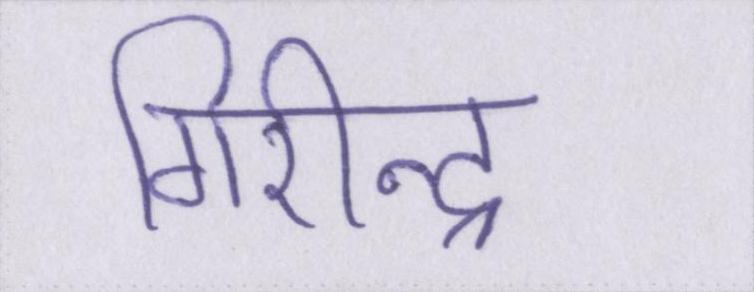 गिरीन्द्र